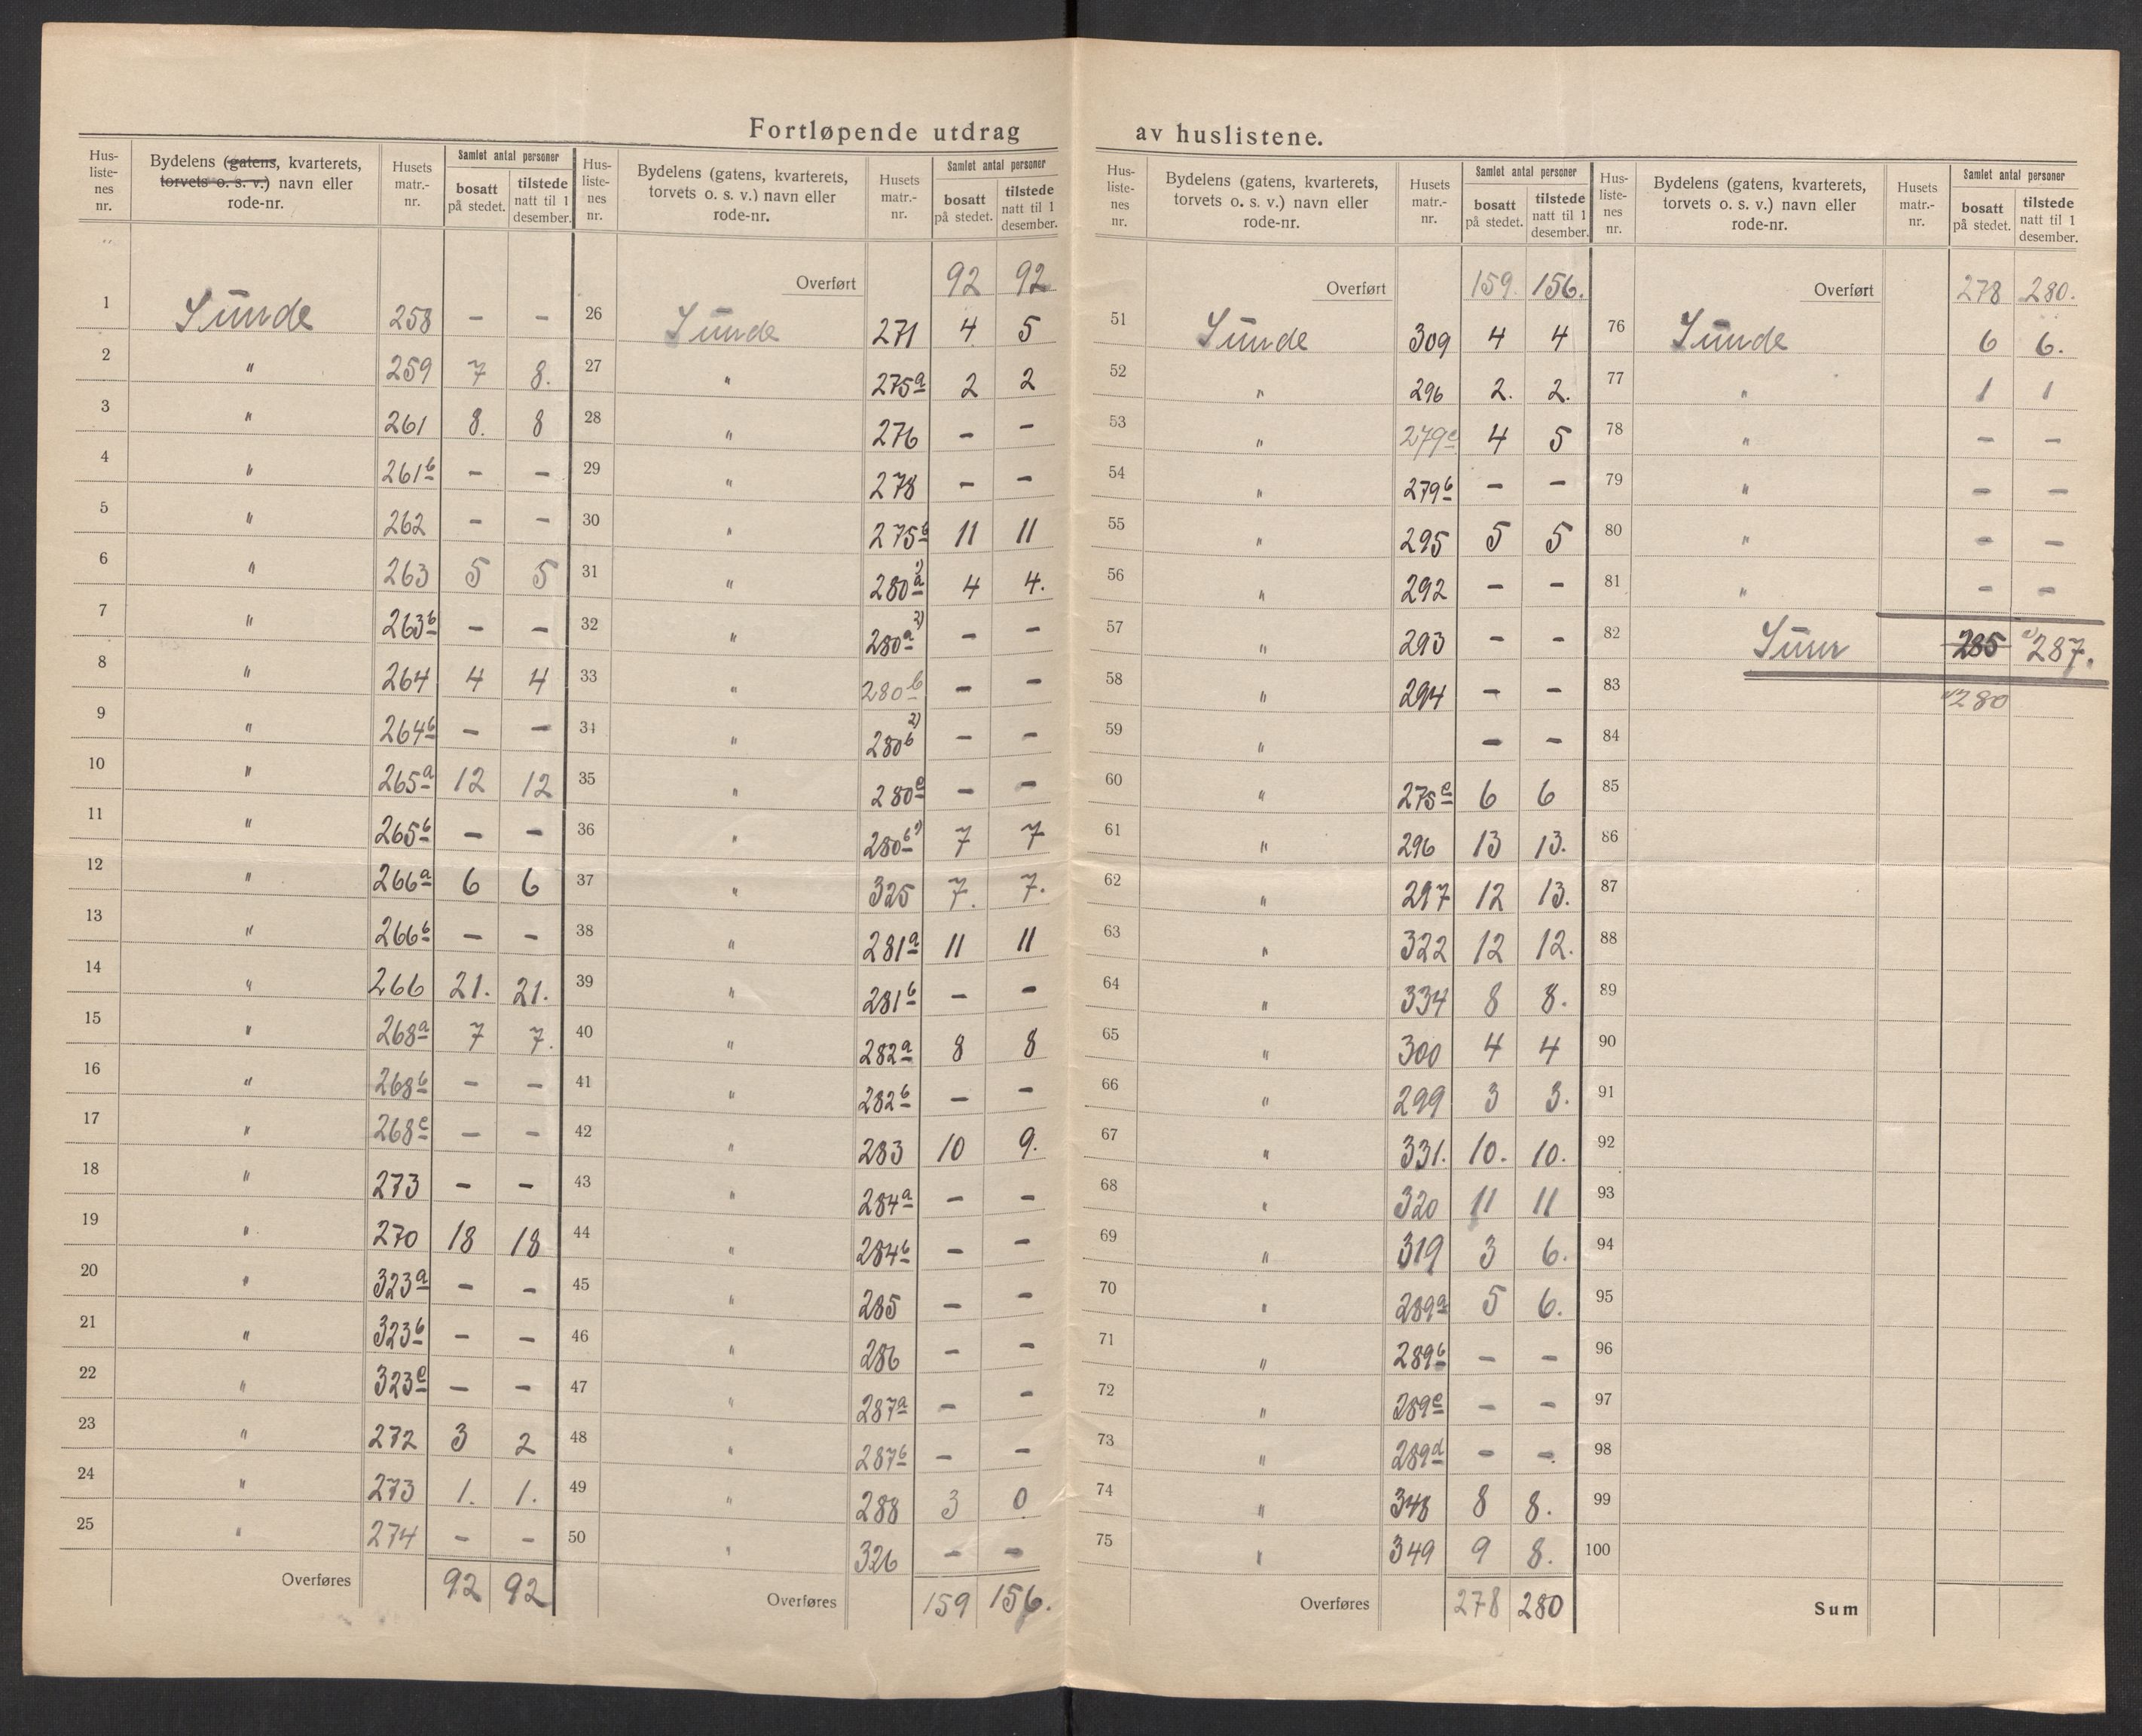 Fortløpende utdrag av huslistene.
Hus-listenes nr. | Bydelens (gatens, kvarterets, torvets o. s. v.) navn eller rode-nr. | Husets matr.-nr. | Samlet antal personer | bosatt på stedet. | tilstede natt til 1 desember.
1 Sunde 258 – –
2 " 259 7 8.
3 " 261 8. 8
4 " 261b – –
5 " 262 – –
6 " 263 5 5
7 " 263b – –
8 " 264 4 4
9 " 264b – –
10 " 265a 12 12
11 " 265b – –
12 " 266a 6 6
13 " 266b – –
14 " 266 21. 21.
15 " 268a 7 7.
16 " 268b – –
17 " 268c – –
18 " 273 – –
19 " 270 18 18
20 " 323a – –
21 " 323b – –
22 " 323c – –
23 " 272 3 2
24 " 273 1. 1.
25 " 274 – –
Overføres 92 92
Hus-listenes nr. | Bydelens (gatens, kvarterets, torvets o. s. v.) navn eller rode-nr. | Husets matr.-nr. | Samlet antal personer | bosatt på stedet. | tilstede natt til 1 desember.
Overført 92 92
26 Sunde 271 4 5
27 " 275a 2 2
28 " 276 – –
29 " 278 – –
30 " 275b 11 11
31 " 280a 1) 4 4.
32 " 280a 2) – –
33 " 280b – –
34 " 280b 2) – –
35 " 280c – –
36 " 280b 7 7
37 " 325 7. 7.
38 " 281a 11 11
39 " 281b – –
40 " 282a 8 8
41 " 282b – –
42 " 283 10 9.
43 " 284a – –
44 " 284b – –
45 " 285 – –
46 " 286 – –
47 " 287a – –
48 " 287b – –
49 " 288 3 0
50 " 326 – –
Overføres 159 156.
Hus-listenes nr. | Bydelens (gatens, kvarterets, torvets o. s. v.) navn eller rode-nr. | Husets matr.-nr. | Samlet antal personer | bosatt på stedet. | tilstede natt til 1 desember.
Overført 159. 156.
51 Sunde 309 4 4
52 " 296 2. 2.
53 " 279c 4 5
54 " 279b – –
55 " 295 5 5
56 " 292 – –
57 " 293 – –
58 " 294 – –
59 " – –
60 " 275c 6 6
61 " 296 13 13.
62 " 297 12 13.
63 " 322 12 12.
64 " 334 8 8.
65 " 300 4 4
66 " 299 3 3.
67 " 331. 10. 10.
68 " 320 11 11
69 " 319 3 6.
70 " 289a 5 6.
71 " 289b – –
72 " 289c – –
73 " 289d – –
74 " 348 8 8.
75 " 349 9 8.
Overføres 278 280
Hus-listenes nr. | Bydelens (gatens, kvarterets, torvets o. s. v.) navn eller rode-nr. | Husets matr.-nr. | Samlet antal personer | bosatt på stedet. | tilstede natt til 1 desember.
Overført 278 280.
76 Sunde 6 6.
77 " 1 1
78 " – –
79 " – –
80 " – –
81 " – –
82 Sum 285 287.
83 280
84
85
86
87
88
89
90
91
92
93
94
95
96
97
98
99
100
Sum